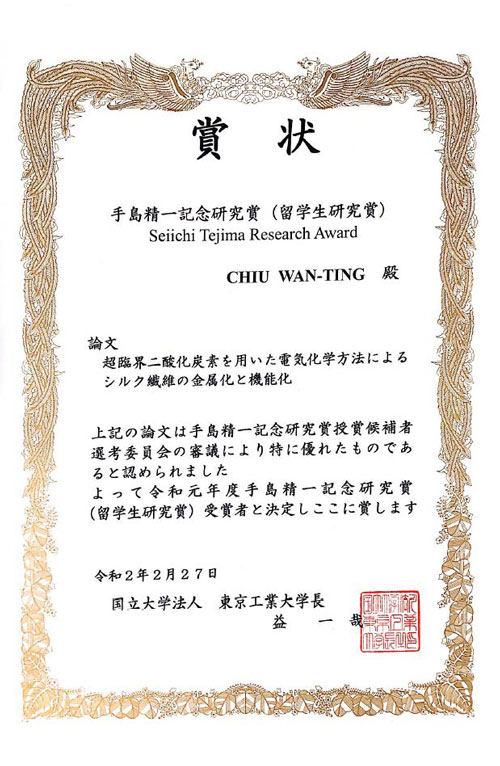 賞状
手島精一記念研究賞（留学生研究賞）
Seiichi Tejima Research Award
CHIU WAN-TING 殿
論文
超臨界二酸化炭素を用いた電気化学方法による
シルク繊維の金属化と機能化
上記の論文は手島精一記念研究賞授賞候補者
選考委員会の審議により特に優れたものであ
ると認められました
よって令和元年度手島精一記念研究賞
(留学生研究賞）受賞者と決定しここに賞します
令和２年２月２７日
国立大学法人 東京工業大学長
益 一哉